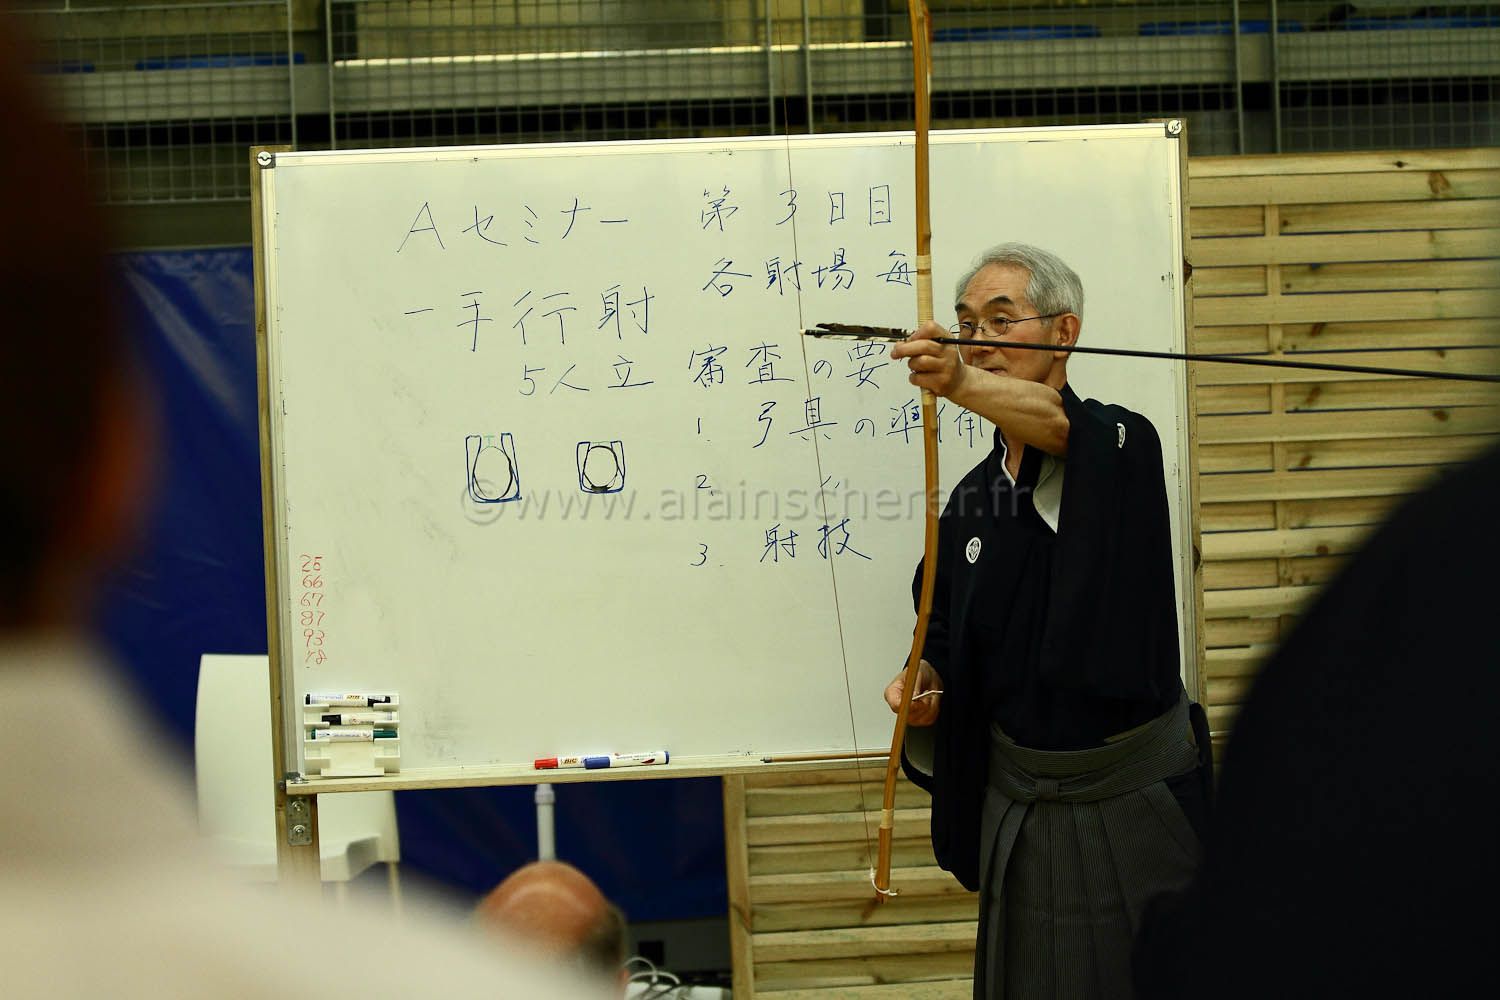 Aセミナー 第3日目
各射場毎
一手行射
5人立 審査の要
1. 弓具の準備
2. 〃
3. 射技
©www.alainscherer.fr
25
66
67
87
93
BIC